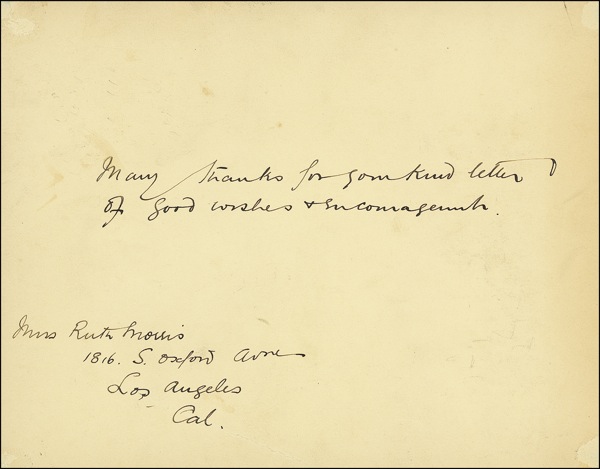 Many thanks for your kind letter
of good wishes & encouragement.
Miss Ruth Morris
1816. S. Oxford Avne
Los Angeles
Cal.